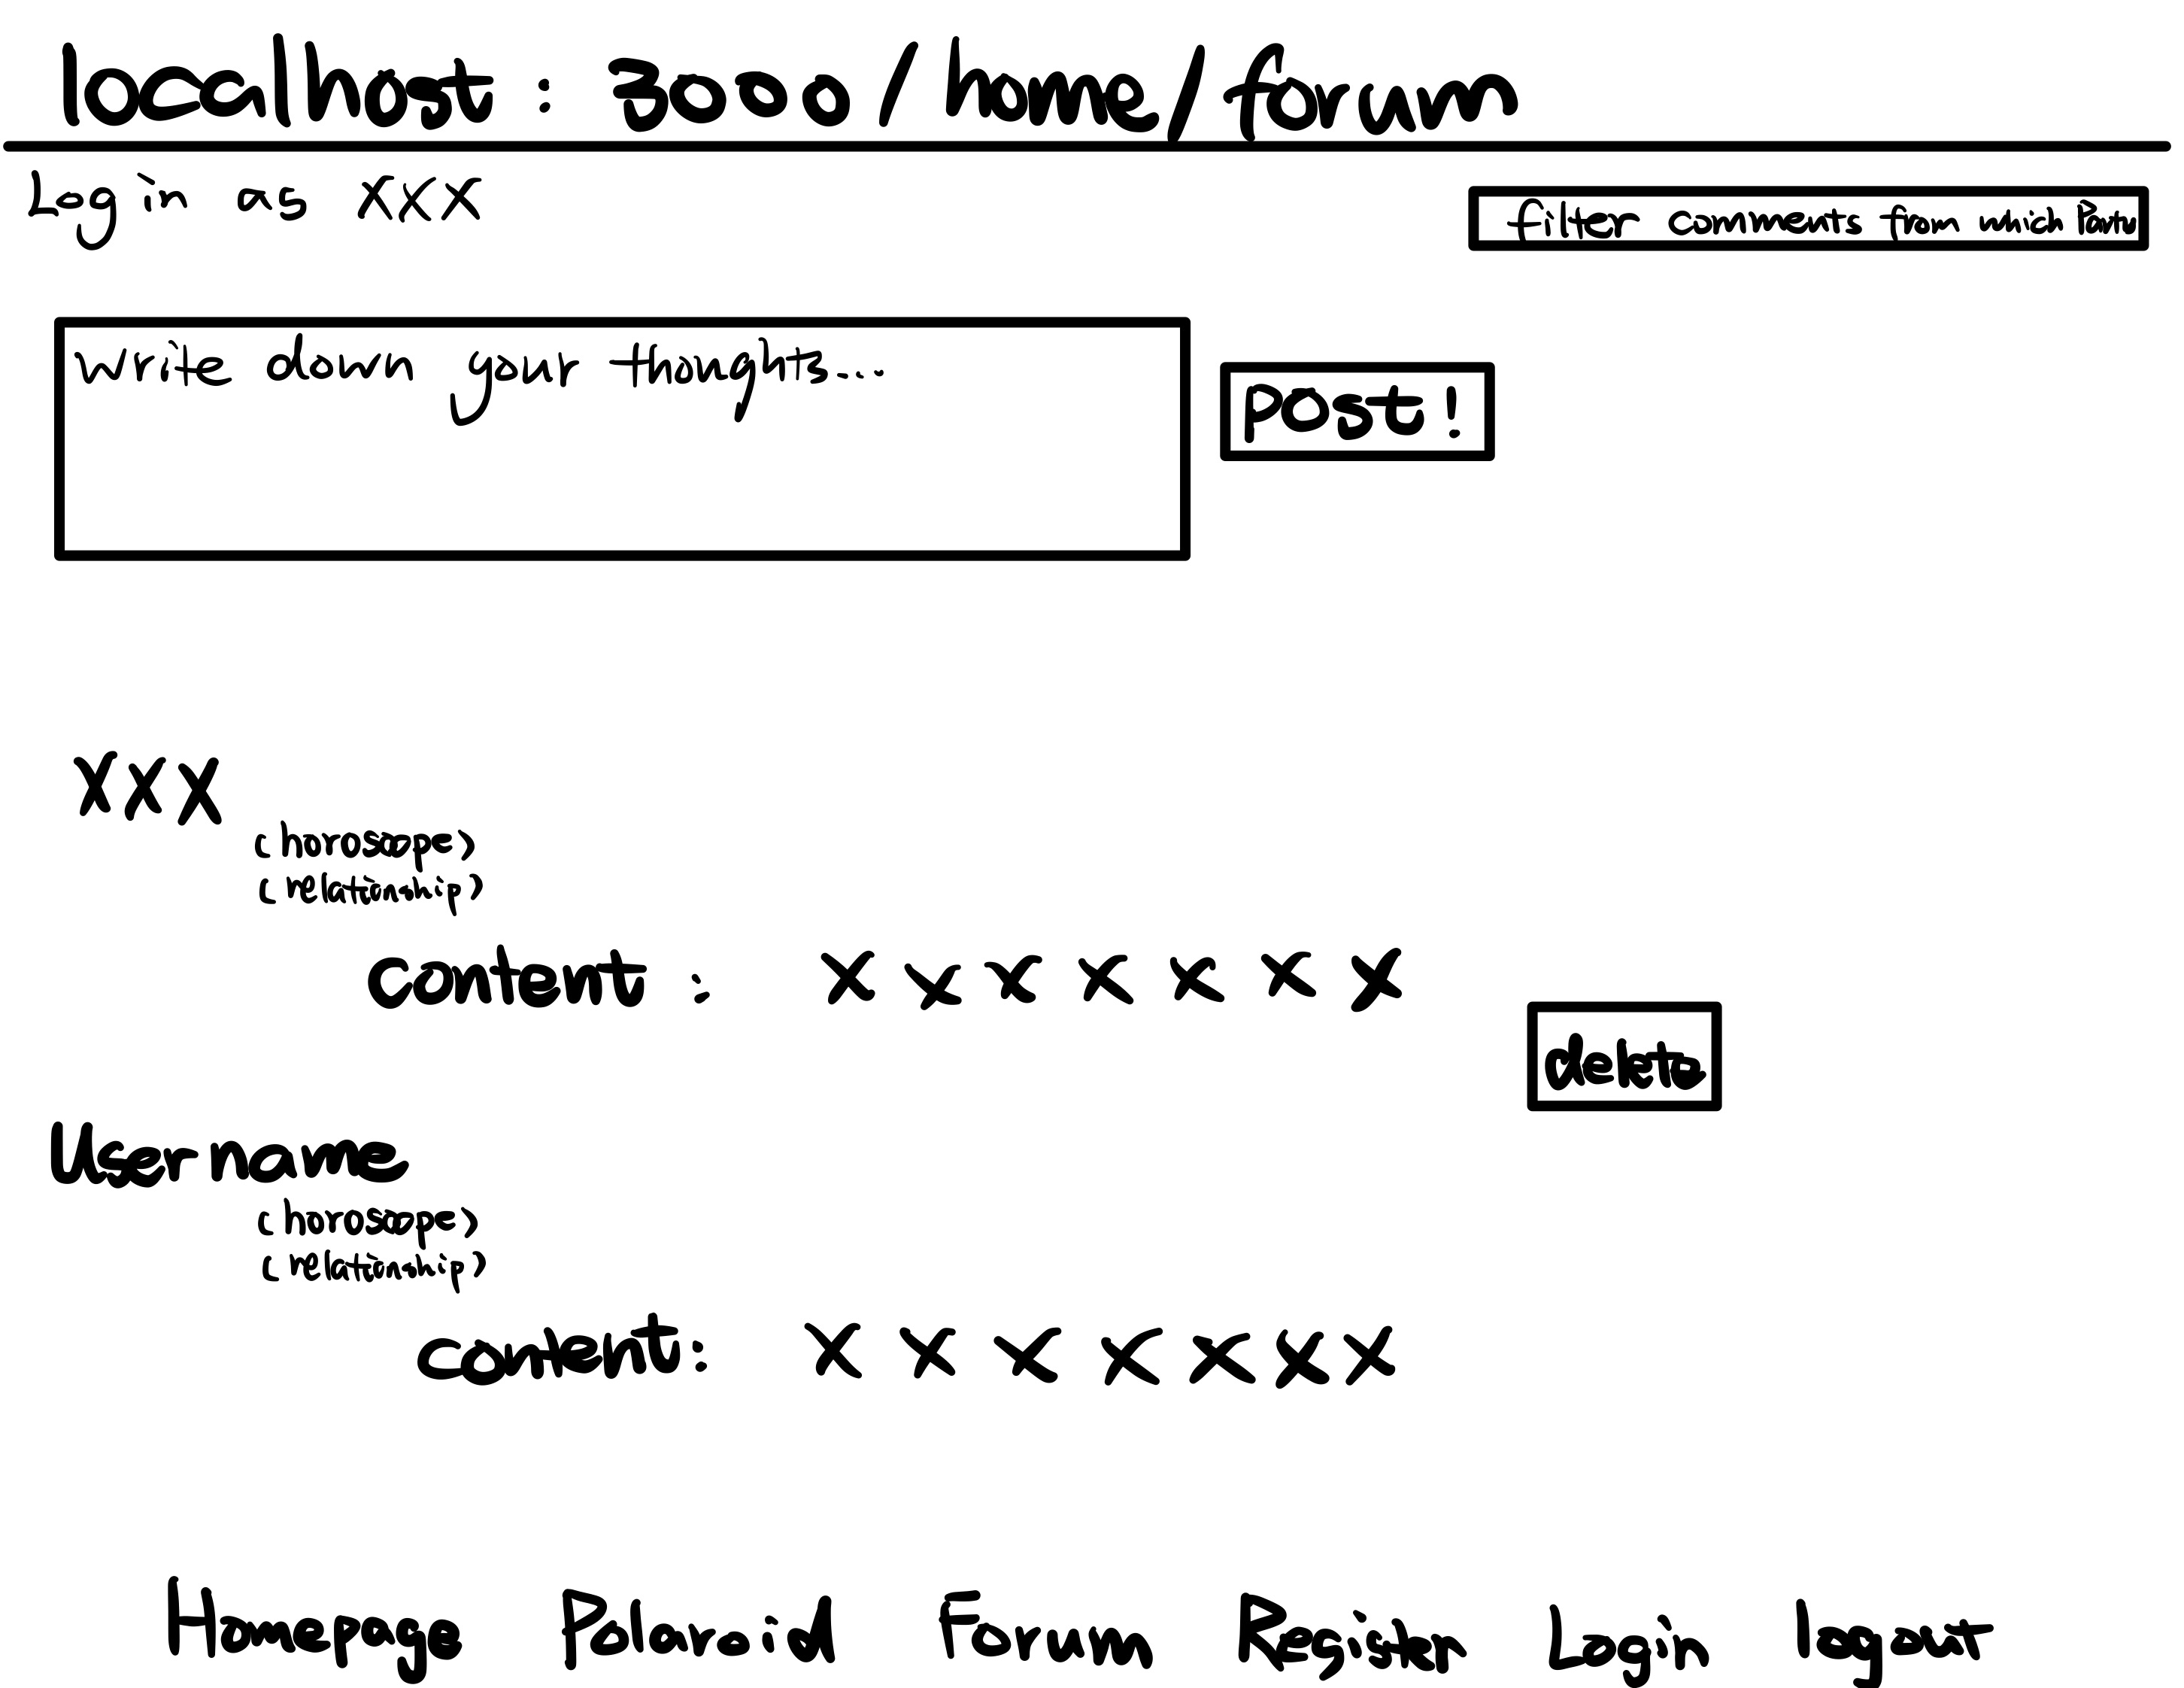 localhost: 3000/home/forum
Log in as XXX
filter comments from which Party
write down your thoughts...
POSt!
XXX
(horoscope)
(relationship)
content: XXXXXXX
delete
Username
(horoscope)
(relationship)
content: XXXXXXX
Homepage Polaroid Forum Register Login logout